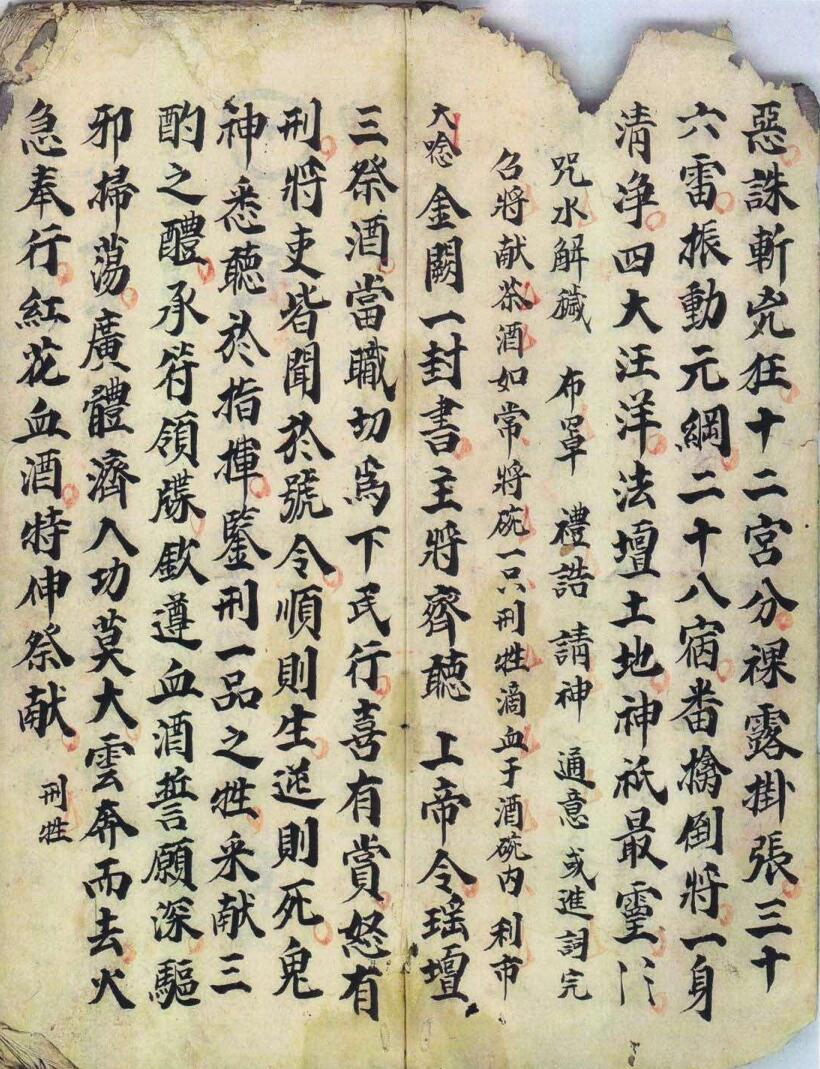 惡誅斬兇狂十二宮分禄露掛張三十
六雷振動元綱二十八宿番擒倒將一身
清净四大汪洋法壇土地神祇最靈
咒水解穢 布罩 禮誥 請神 通意或進詞完
召將献茶酒如常將碗一只刑牲滴血于酒碗内 利市
大唸 金闕一封書主將齊聽 上帝令瑶壇
三祭酒當職切爲下民行喜有賞怒有
刑將吏皆聞於號令順則生逆則死鬼
神悉聽於指揮鑒刑一品之牲采献三
酌之醴承符領牒欽遵血酒誓願深驅
邪掃蕩廣體濟人功莫大雲奔而去火
急奉行紅花血酒特伸祭献 刑牲